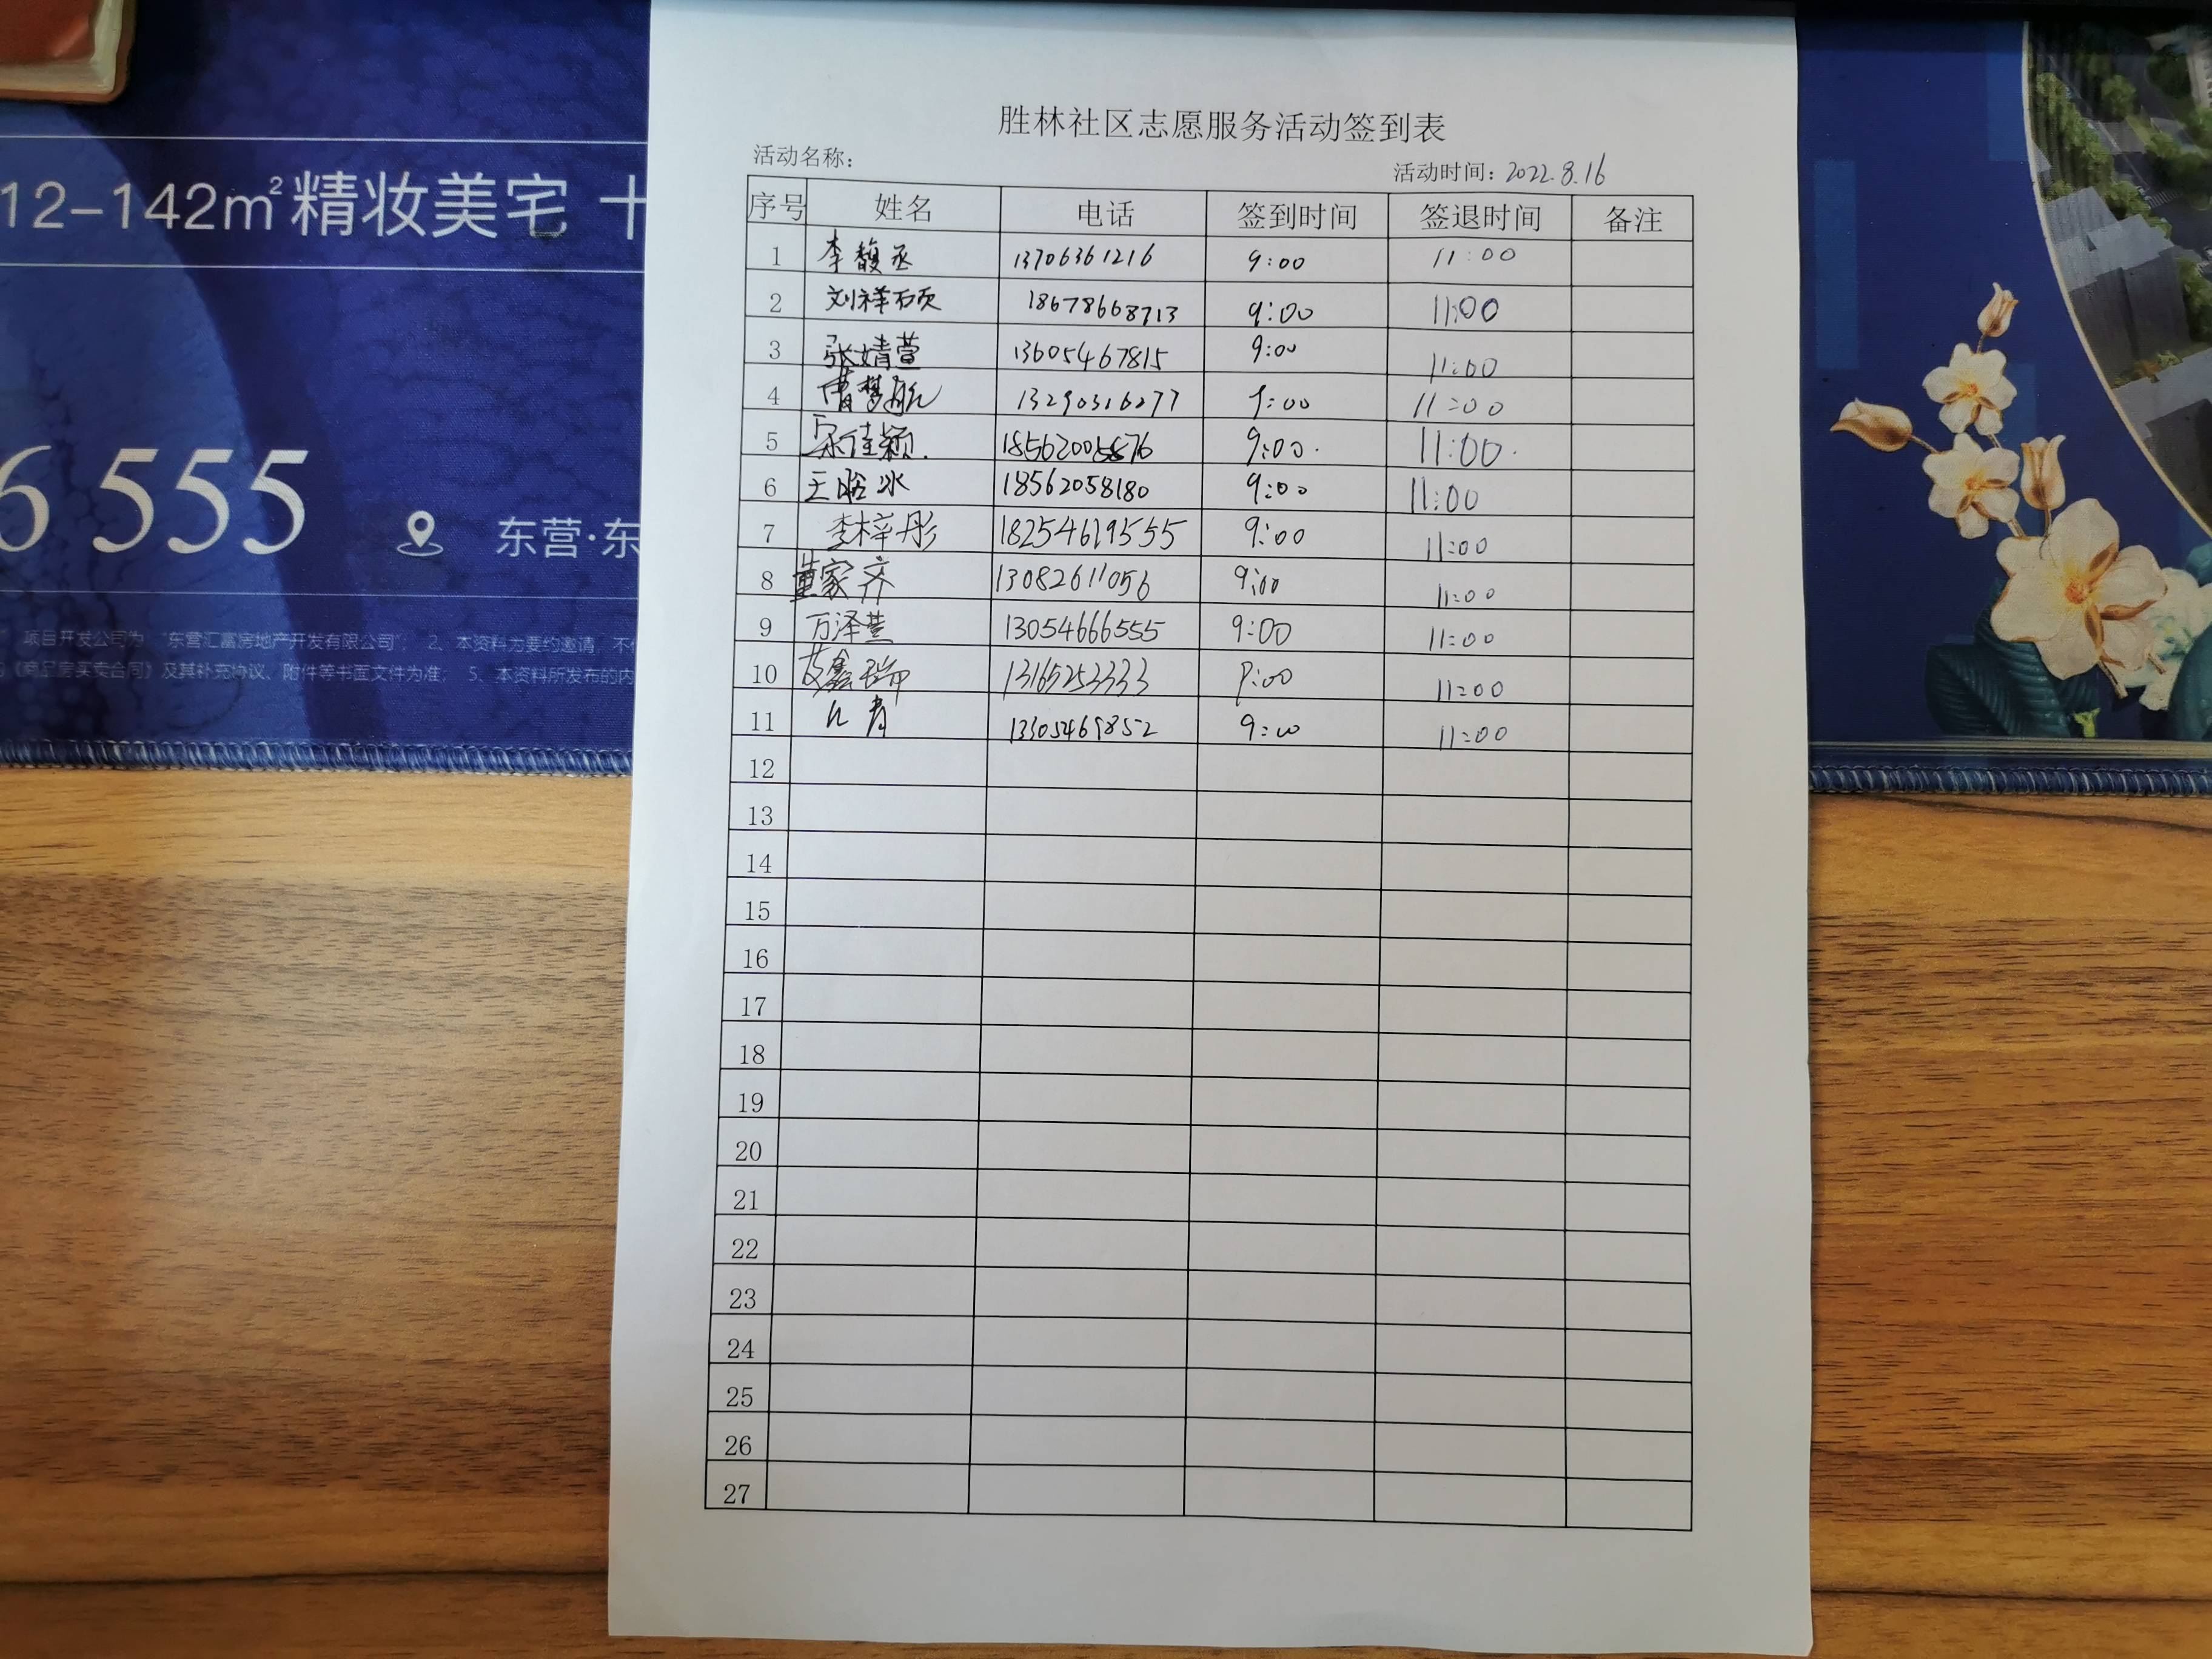 12-142m²精妆美宅 十
6 555
东营·东
项目开发公司为 “东营汇富房地产开发有限公司”； 2、本资料为要约邀请，不作
《商品房买卖合同》及其补充协议、附件等书面文件为准； 5、本资料所发布的内
胜林社区志愿服务活动签到表
活动名称： 活动时间：2022.8.16
序号 姓名 电话 签到时间 签退时间 备注
1 李馥丞 13706361216 9:00 11:00
2 刘祥硕 18678668713 9:00 11:00
3 张婧萱 13605467815 9:00 11:00
4 曹梦航 13290316277 9:00 11:00
5 宋佳颖. 18562005876 9:00. 11:00.
6 王晗冰 18562058180 9:00 11:00
7 李梓彤 18254619555 9:00 11:00
8 董家齐 13082611056 9:00 11:00
9 万泽萱 13054666555 9:00 11:00
10 艾鑫瑞 13165253333 9:00 11:00
11 13305469852 9:00 11:00
12
13
14
15
16
17
18
19
20
21
22
23
24
25
26
27